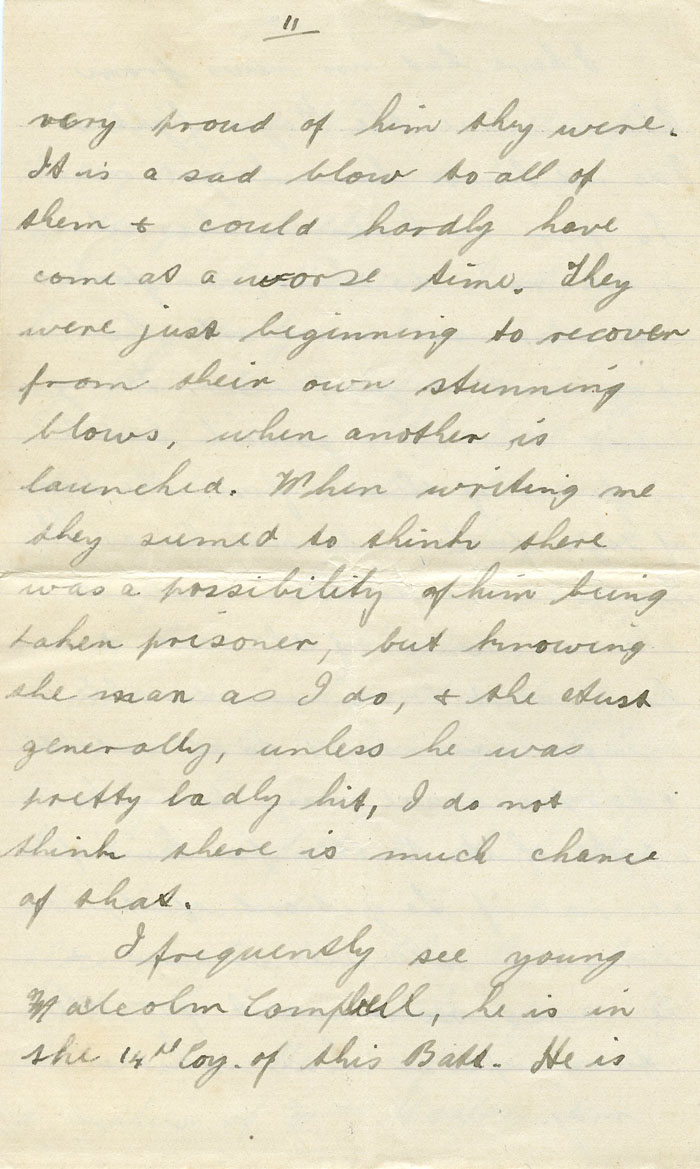 11
very proud of him they were.
It is a sad blow to all of
them & could hardly have
come at a worse time. They
were just beginning to recover
from their own stunning
blows, when another is
launched. When writing me
they seemed to think there
was a possibility of him being
taken prisoner, but knowing
the man as I do, & the Aust
generally, unless he was
pretty badly hit, I do not
think there is much chance
of that.
I frequently see young
Malcolm Campbell, he is in
the 14th Coy. of this Batt. He is